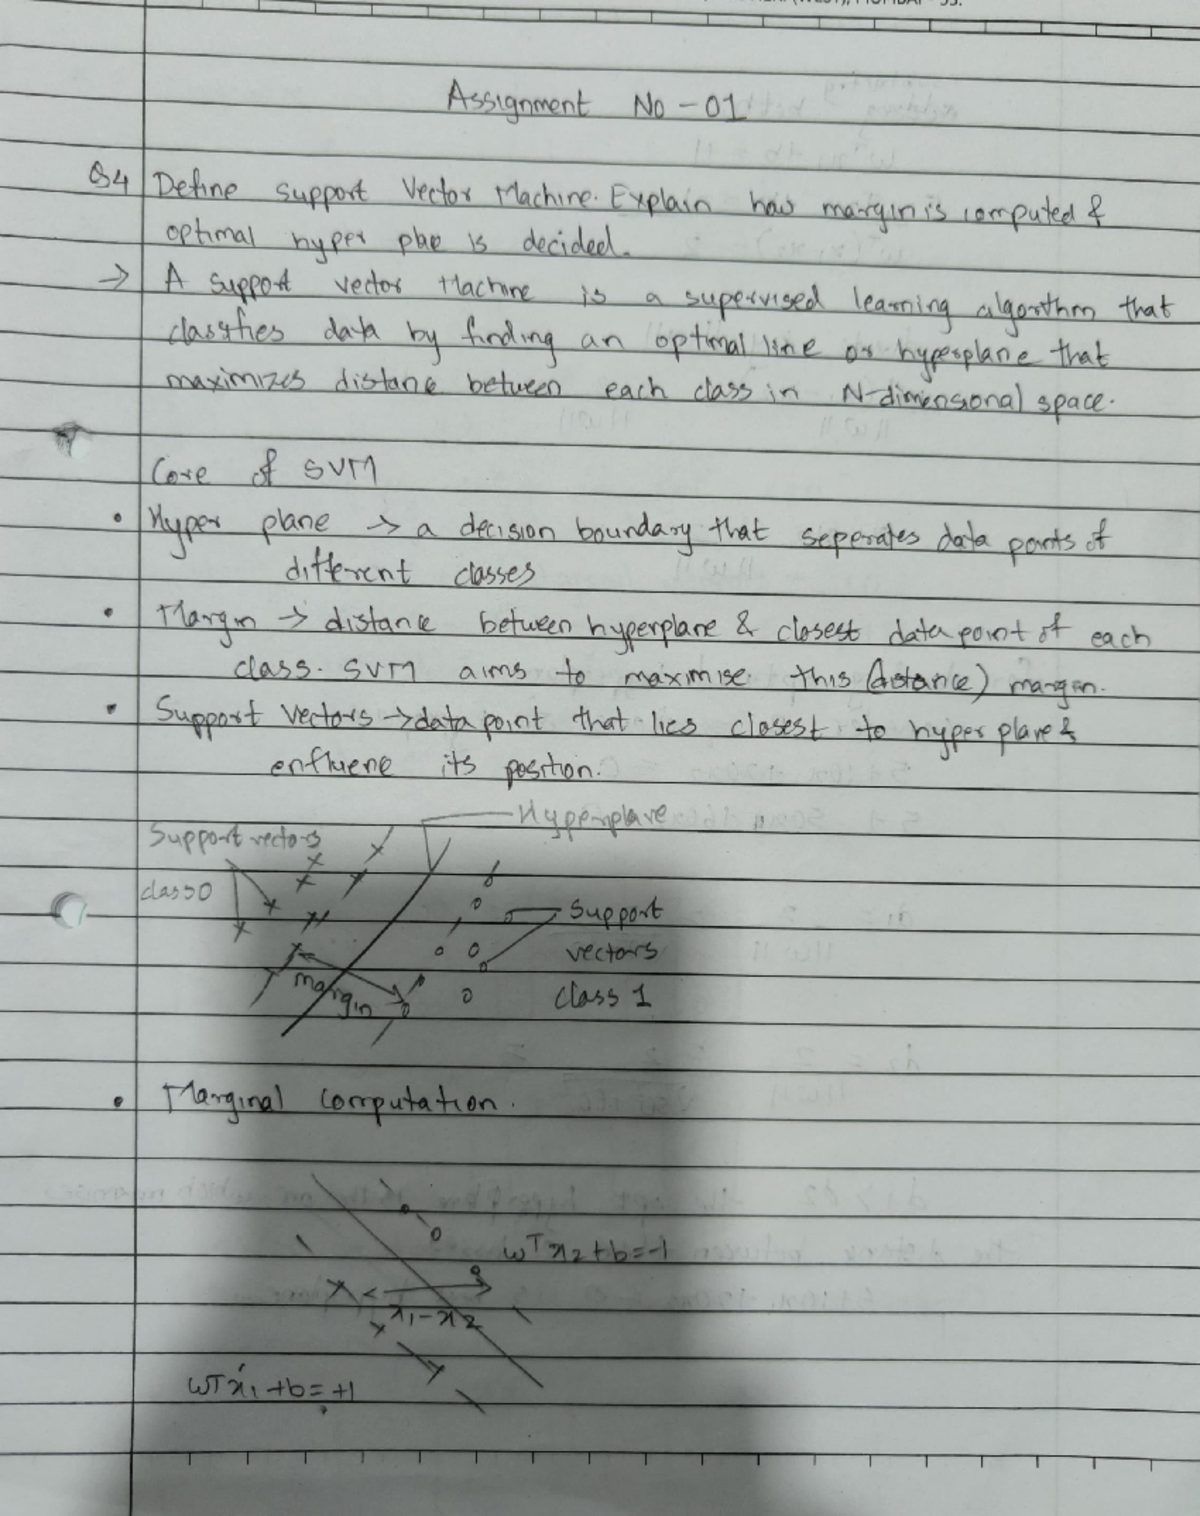 Assignment No - 01
Q4 Define Support Vector Machine. Explain how margin is computed &
optimal hyper plae is decided.
→ A Support vector Machine is a supervised learning algorithm that
classifies data by finding an optimal line or hyperplane that
maximizes distance between each class in N-dimensional space.
Core of SVM
• Hyper plane → a decision boundary that seperates data points of
different classes
• Margin → distance between hyperplane & closest data point of each
class. SVM aims to maximise this (distance) margin.
• Support Vectors → data point that lies closest to hyper plane &
enfluene its position.
Hyperplane
Support vectors
class 0
Support
vectors
margin
class 1
• Marginal computation.
wᵀx₂ + b = -1
x₁ - x₂
wᵀx₁ + b = +1